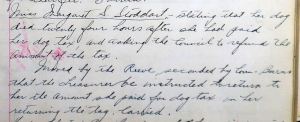 Margaret S. Stoddart - stating that her dog
died twenty four hours after she had paid
her dog tax and asking the Council to refund the
amount of the tax.
Moved by the Reeve, seconded by Coun.
that the Treasurer be instructed to return to
her the amount she paid for dog tax on her
returning the tag. Carried.